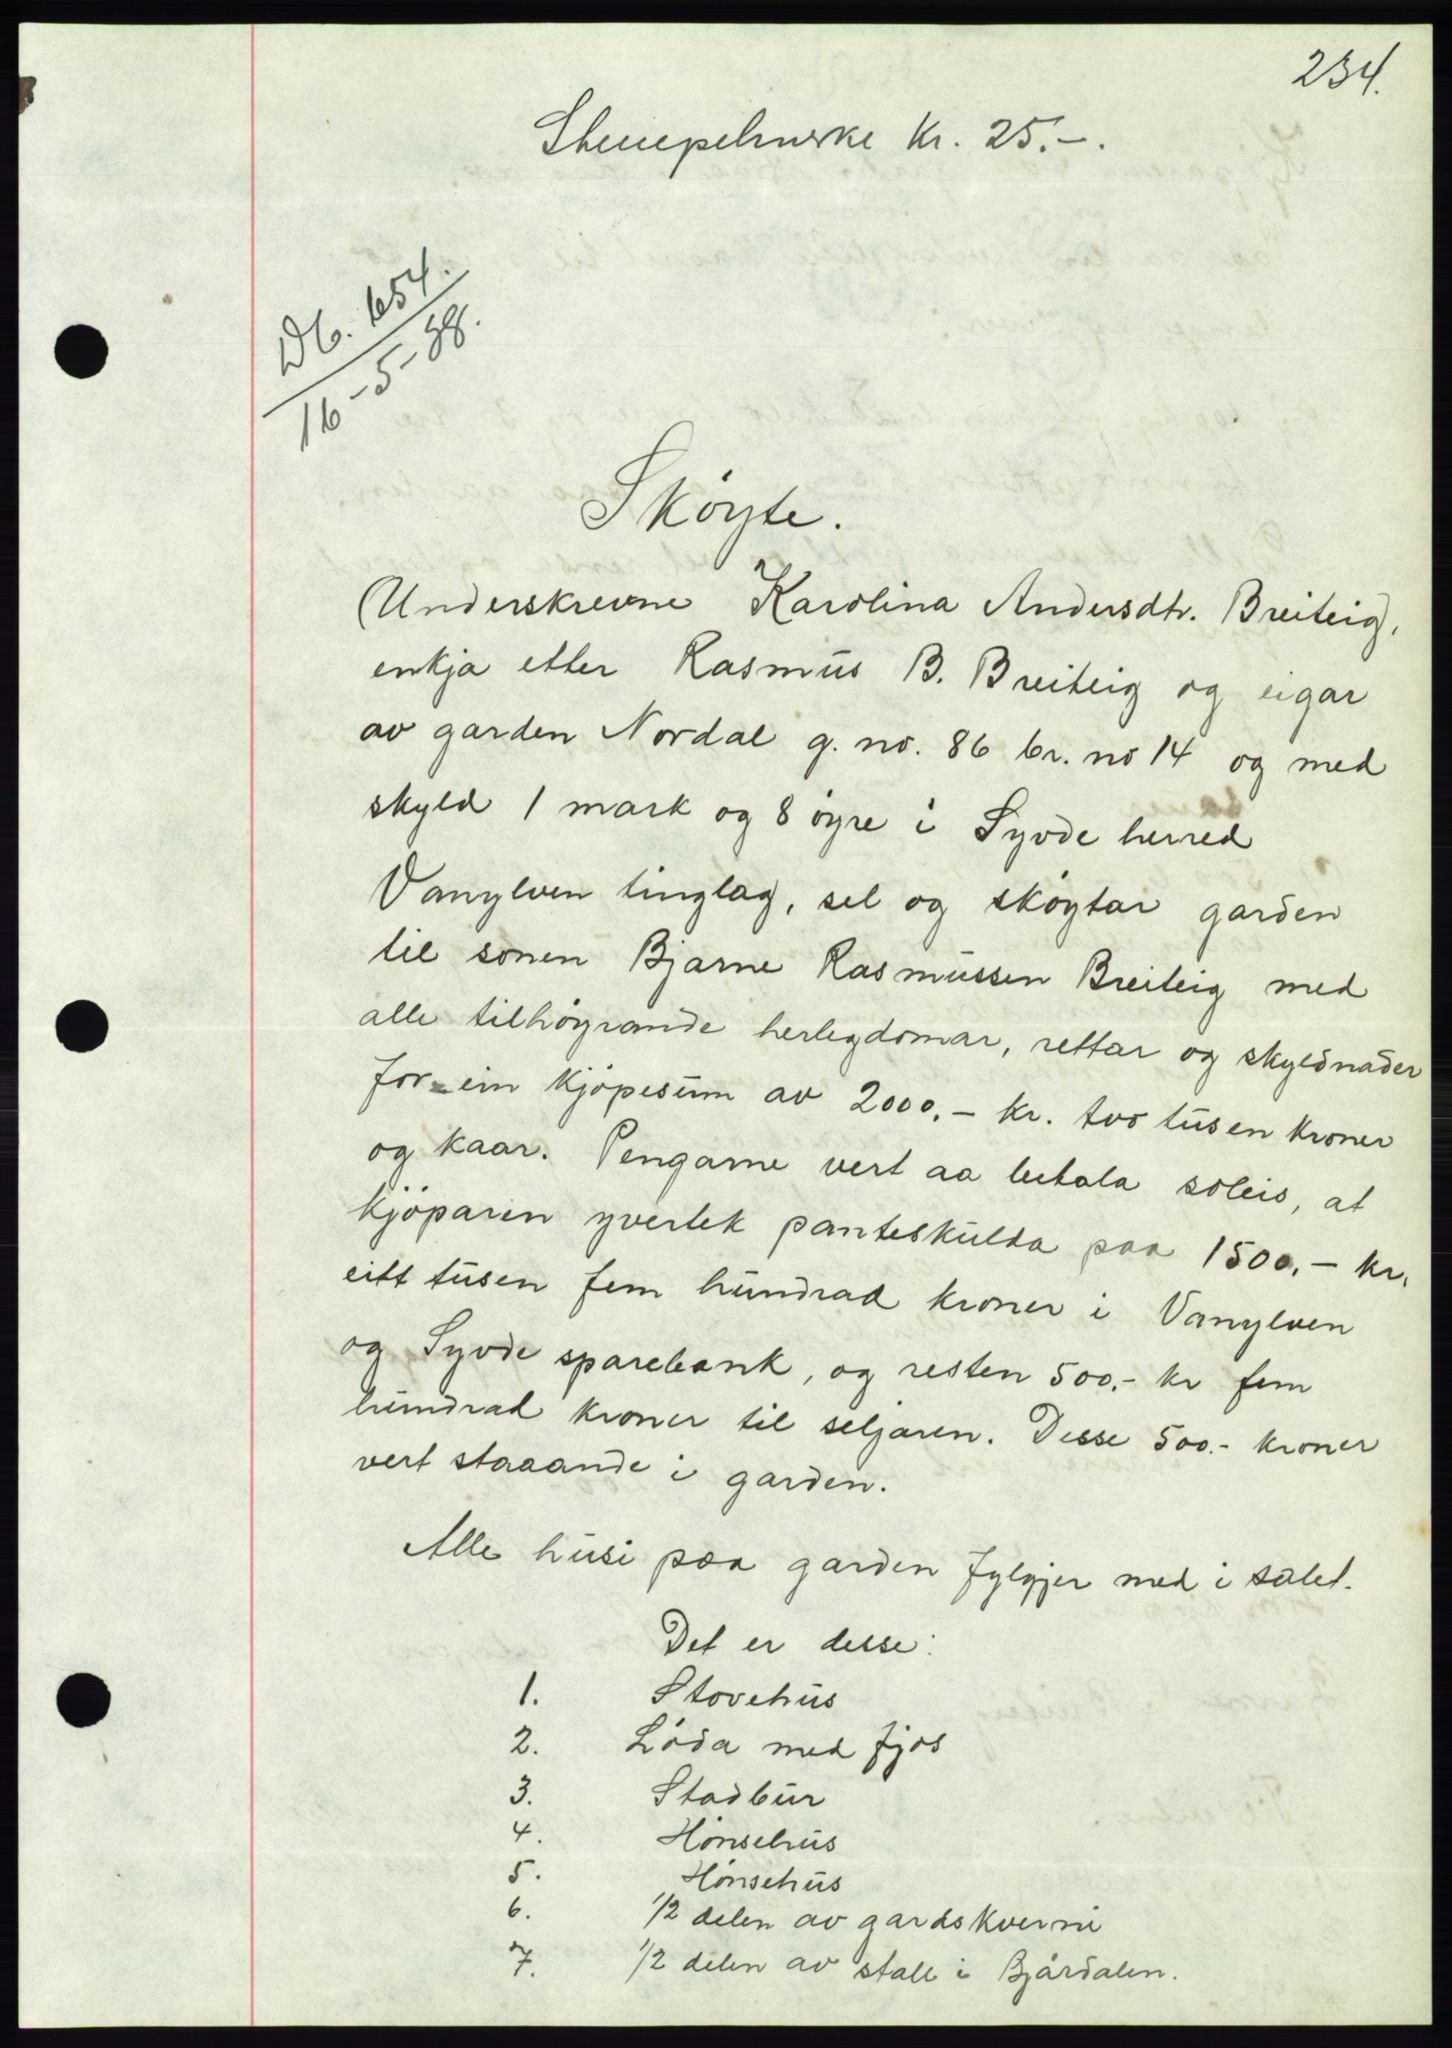 234.
Stempelmerke Kr. 25.-.
Db. 654.
16-5-38.
Skøyte.
Underskrevne Karolina Andersdtr. Breiteig,
enkja etter Rasmus B. Breiteig og eigar
av garden Nordal g. no. 86 br. no 14 og med
skyld 1 mark og 8 øyre i Syvde herred
Vanylven tinglag, sel og skøytar garden
til sonen Bjarne Rasmussen Breiteig med
alle tilhøyrande herlegdomar, rettar og skyldnader
for ein kjøpesum av 2000.- kr. tvo tusen kroner
og kaar. Pengarne vert aa betala soleis, at
kjøparen yvertek panteskulda paa 1500.- kr.
eitt tusen fem hundrad kroner i Vanylven
og Syvde sparebank, og resten 500.- kr fem
hundrad kroner til seljaren. Desse 500.- kroner
vert staaande i garden.
Alle husi paa garden fylgjer med i salet.
Det er desse:
1. Stovehus
2. Løda med fjos
3. Stadbur
4. Hønsehus
5. Hønsehus
6. 1/2 delen av gardskverni
7. 1/2 delen av stall i Bjårdalen.